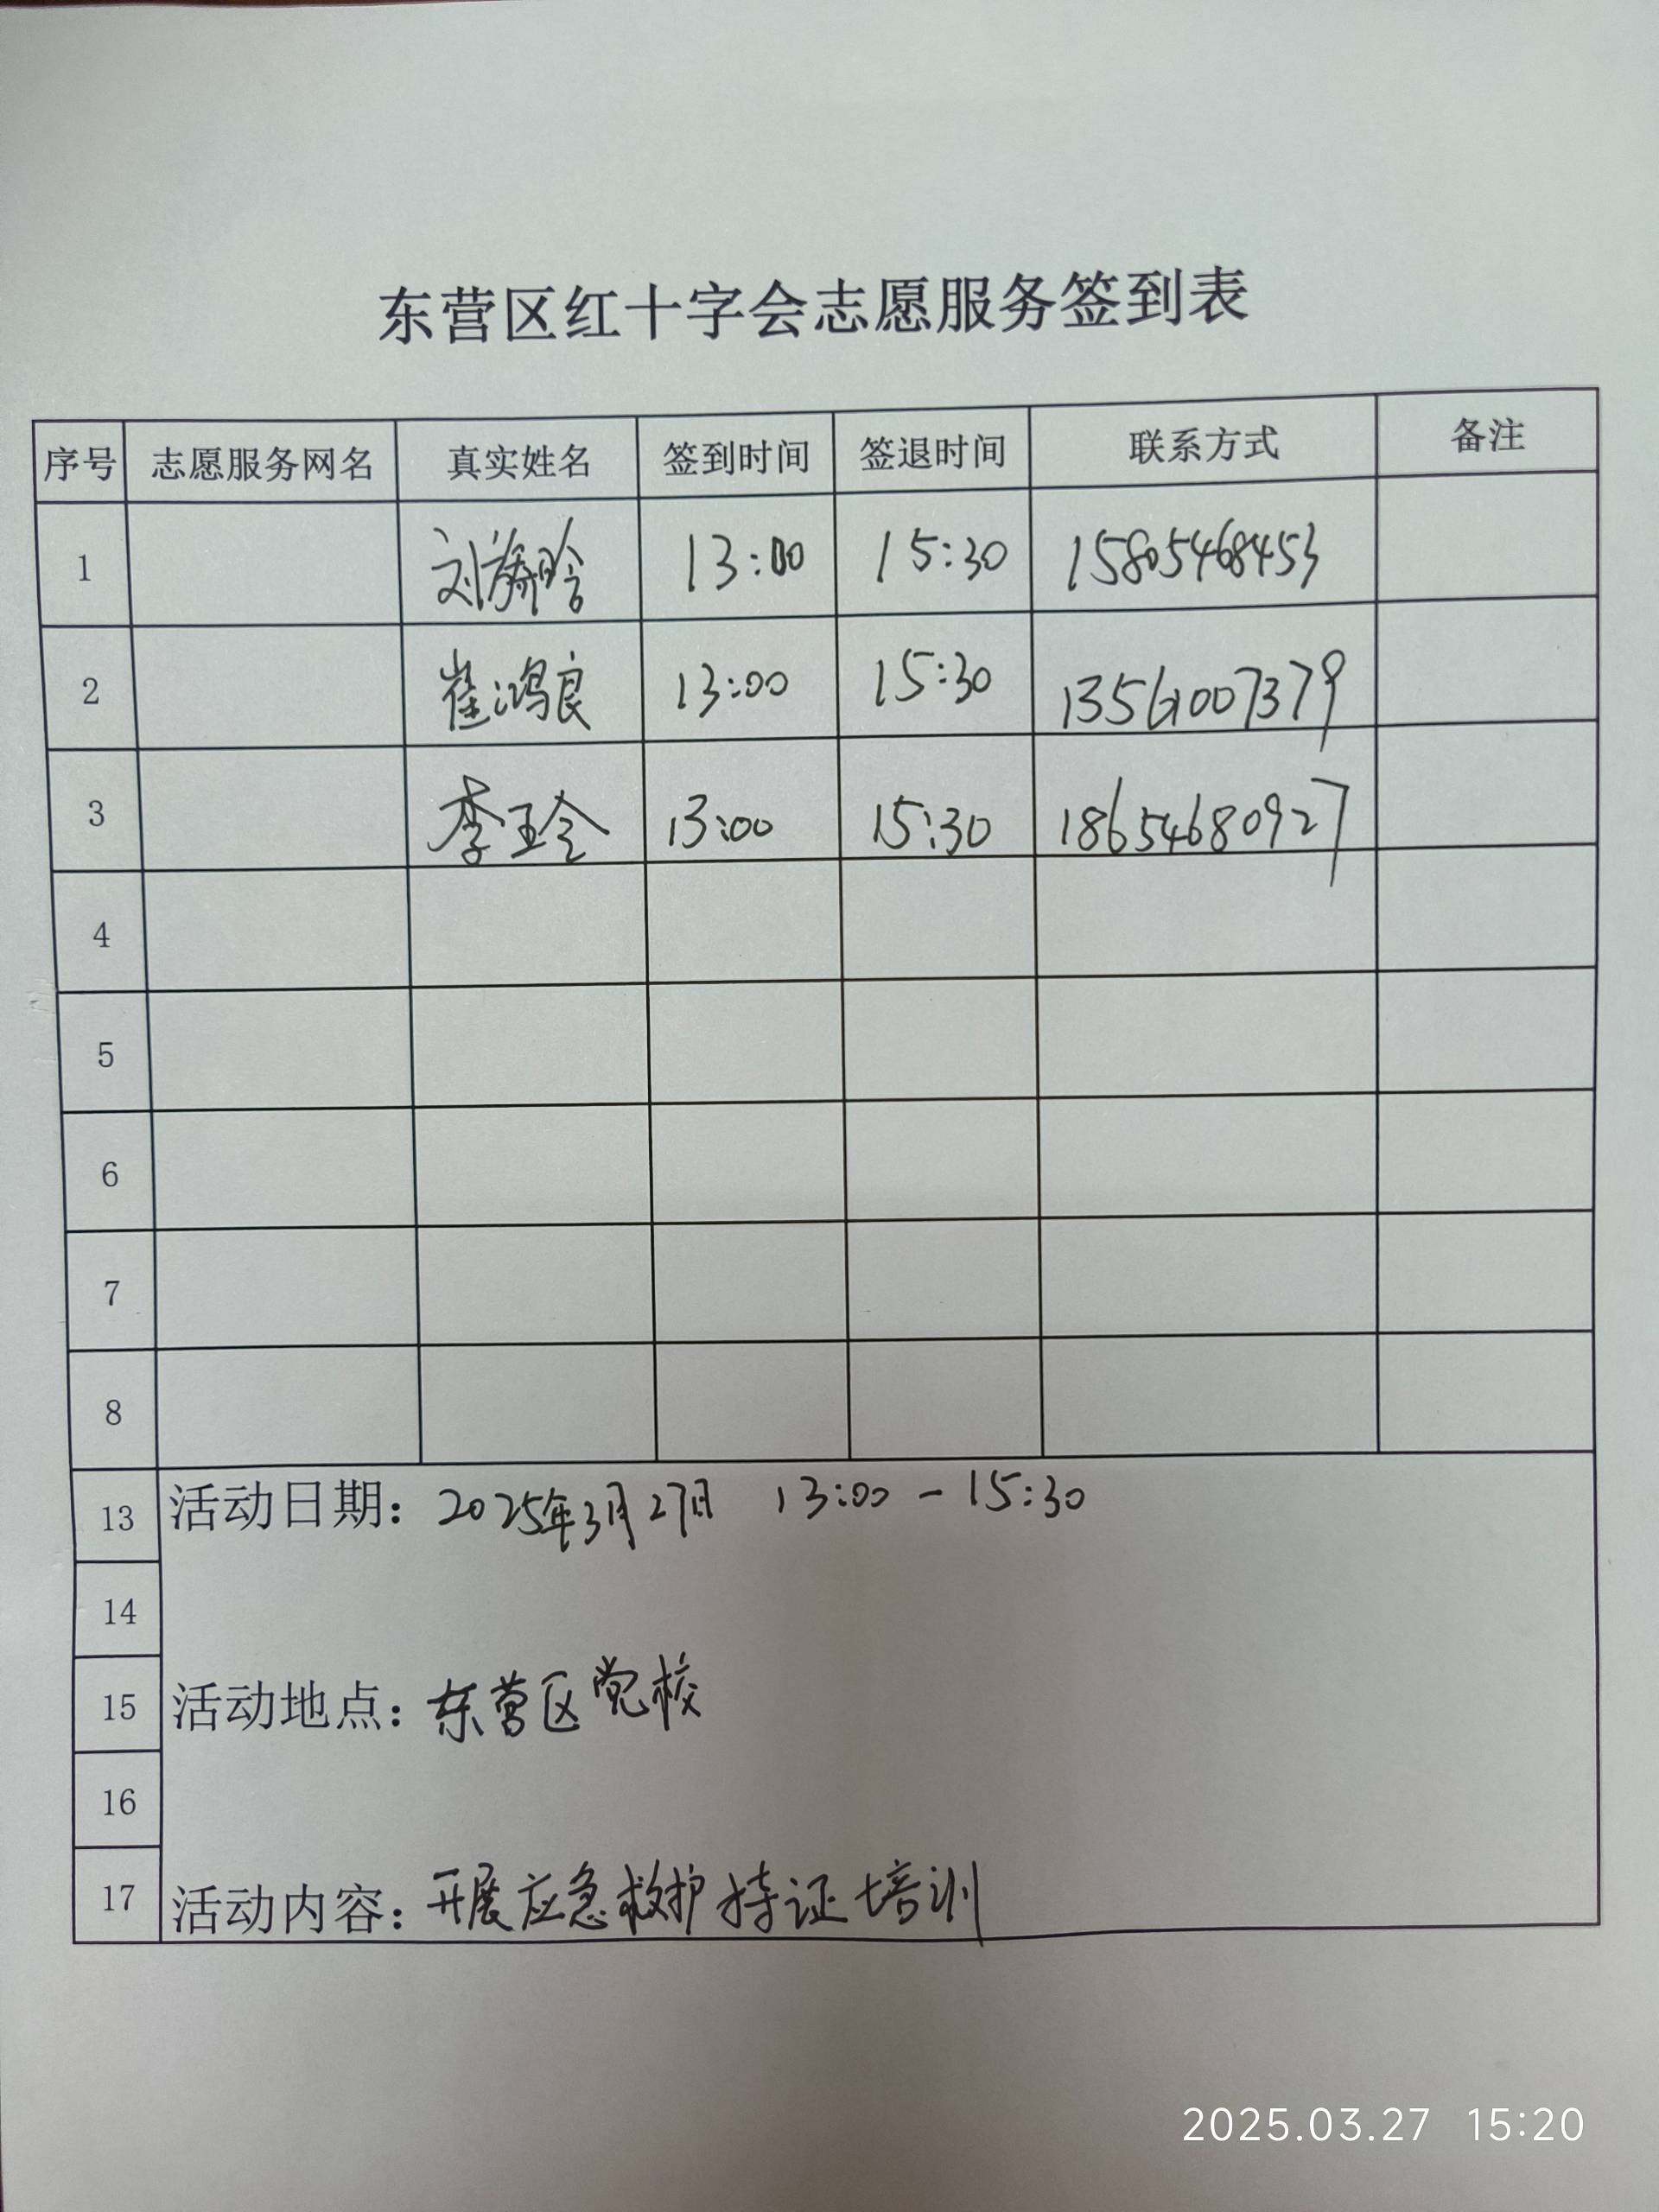 东营区红十字会志愿服务签到表
序号 志愿服务网名 真实姓名 签到时间 签退时间 联系方式 备注
1 刘 13:00 15:30 15805468453
2 崔鸿良 13:00 15:30 13561007379
3 李玉玲 13:00 15:30 18654680927
4
5
6
7
8
13 活动日期：2025年3月27日 13:00-15:30
14
15 活动地点：东营区党校
16
17 活动内容：开展应急救护持证培训
2025.03.27 15:20